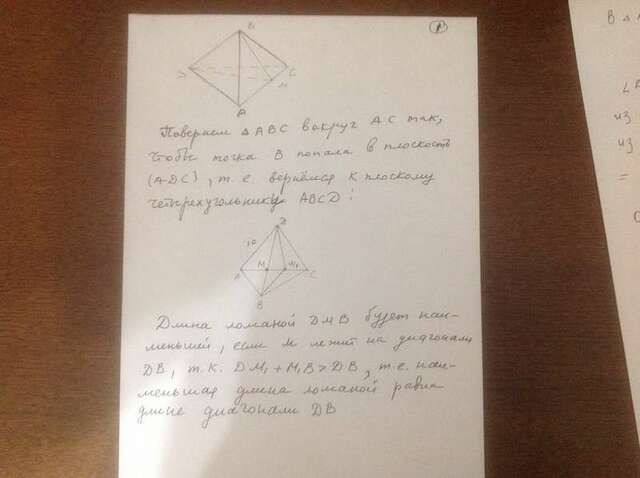 1
B
D
C
M
A
Повернем △ABC вокруг AC так,
чтобы точка B попала в плоскость
(ADC), т.е вернёмся к плоскому
четырехугольнику ABCD:
D
10
A
M
M₁
C
B
Длина ломаной DMB будет наи-
меньшей, если M лежит на диагонали
DB, т.к. DM₁ + M₁B > DB, т.е. наи-
меньшая длина ломаной равна
длине диагонали DB
В △
∠
из
из
=